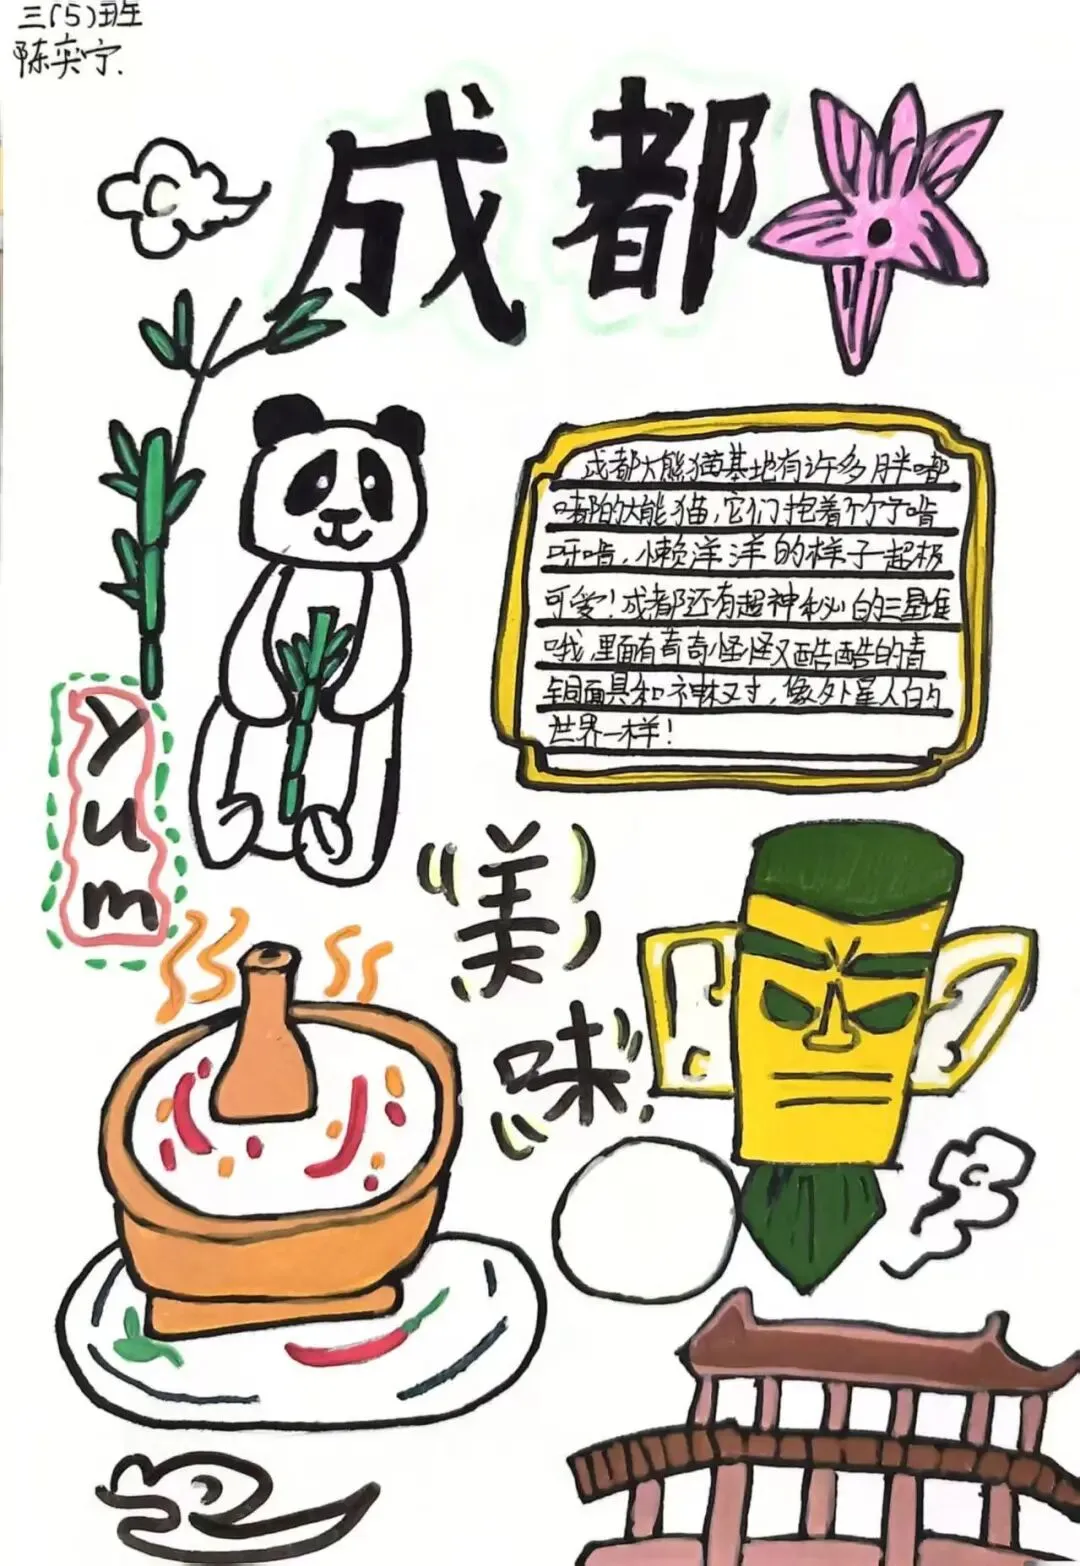 三(5)班
陈奕宁
成都
成都大熊猫基地有许多胖嘟
嘟的大熊猫,它们抱着竹子啃
呀啃,懒洋洋的样子超极
可爱!成都还有超神秘的三星堆
哦,里面有奇奇怪怪又酷酷的青
铜面具和神树,像外星人的
世界一样!
yum
美味